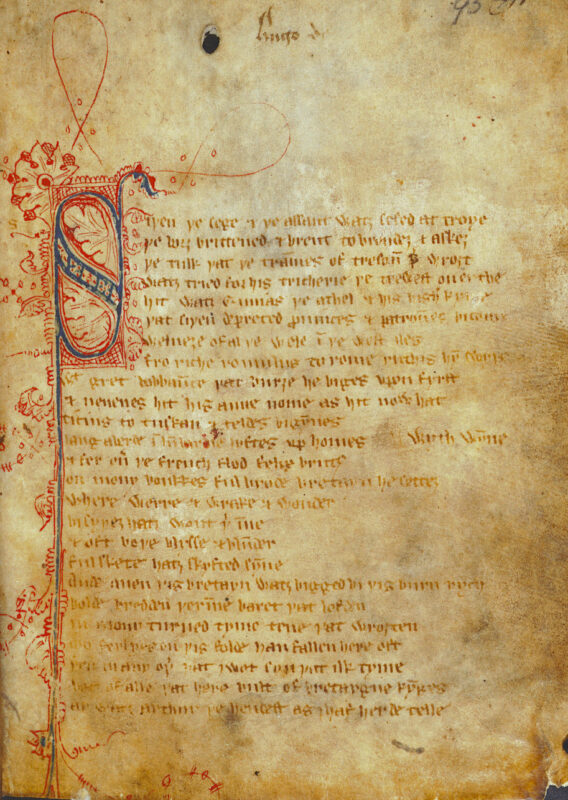 Hugo de
SIþen þe sege & þe assaut watz sesed at troye
þe borȝ brittened & brent to brondez & askez
þe tulk þat þe trammes of tresoũ þ̉ wroȝt
watz tried for his tricherie þe trewest on erthe
hit watz Ennias þe athel & his highe kynde
þat siþen depreced prouinces & patrounes bicome
welneȝe of al þe wele ĩ þe west iles
fro riche romulus to rome ricchis hỹ swyþe
gret bobbaũce þat burȝe he biges vpon fyrst
& neuenes hit his aune nome as hit now hat
ticius to tuskan & teldes bigỹnes
langaberde ĩ lumbardie lyftes vp homes wyth wỹne
& fer oũ þe french flod felix brutus
on mony bonkkes ful brode bretayn he settez
where werre & wrake & wonder
bi syþez hatz wont þ̉ ĩne
& oft boþe blysse & blunder
ful skete hatz skyfted sỹne
Ande quen þis bretayn watz bigged bi þis burn rych
bolde bredden þerĩne baret þat lofden
in mony turned tyme tene þat wroȝten
mo ferlyes on þis folde han fallen here oft
þen in any oþ̉ þat I wot syn þat ilk tyme
bot of alle þat here bult of bretaygne kỹges
ay watz arthur þe hendest as I haf herde telle